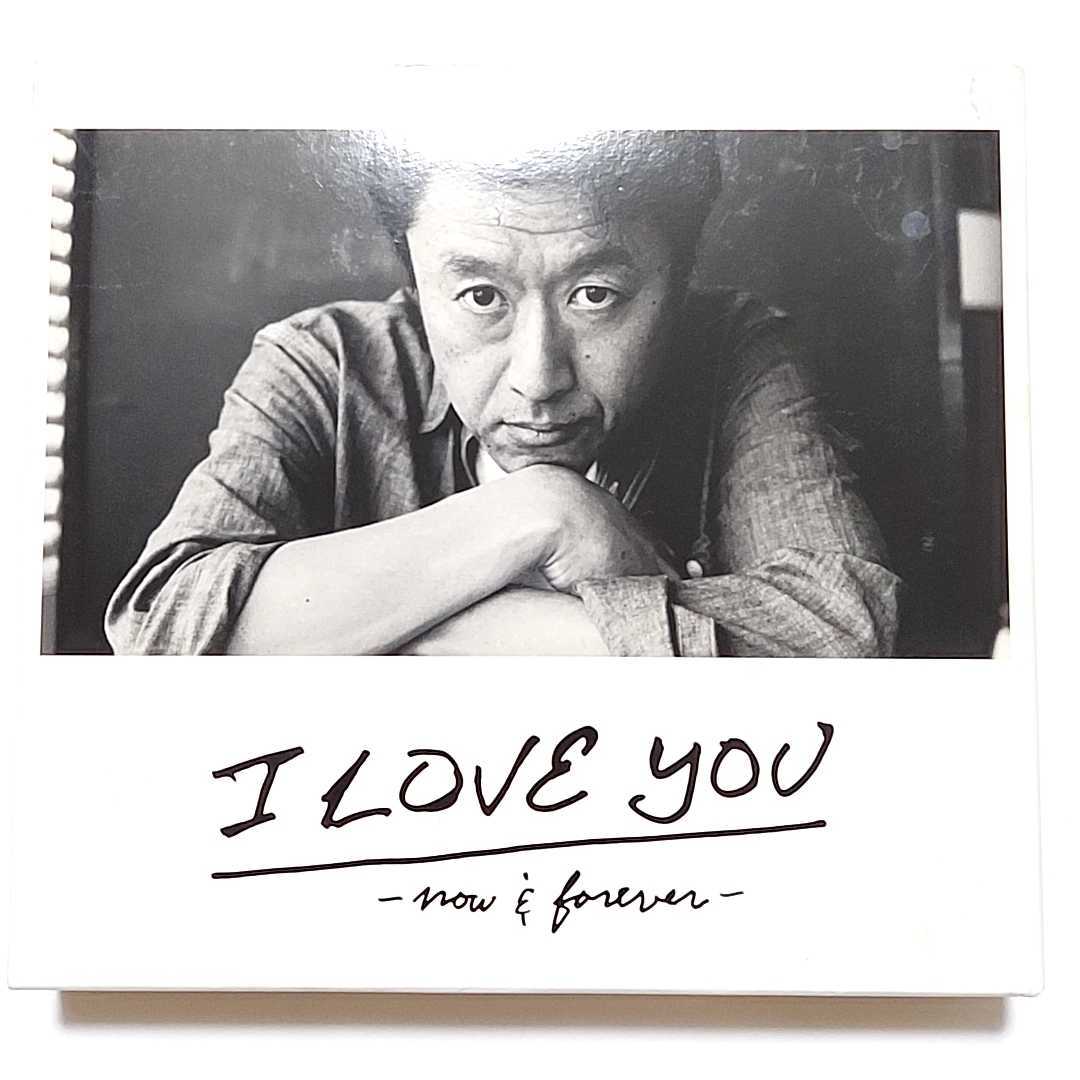 I LOVE YOU
- now & forever -